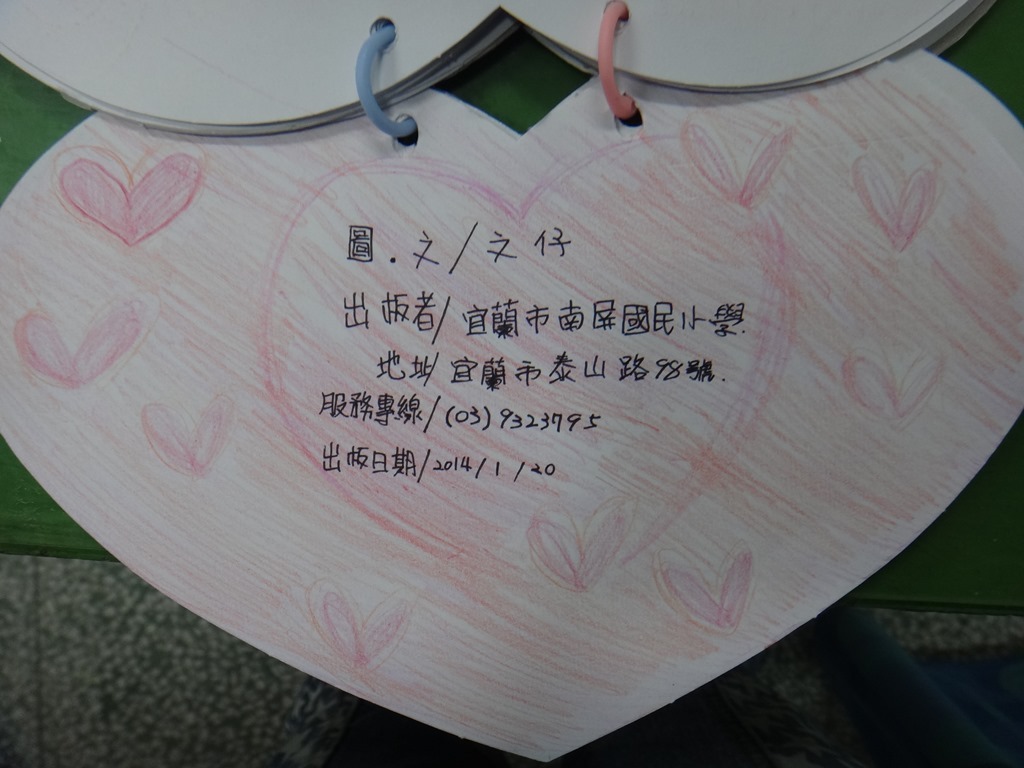 圖.文/文仔
出版者/宜蘭市南屏國民小學.
地址/宜蘭市泰山路98號.
服務專線/(03)9323795
出版日期/2014/1/20